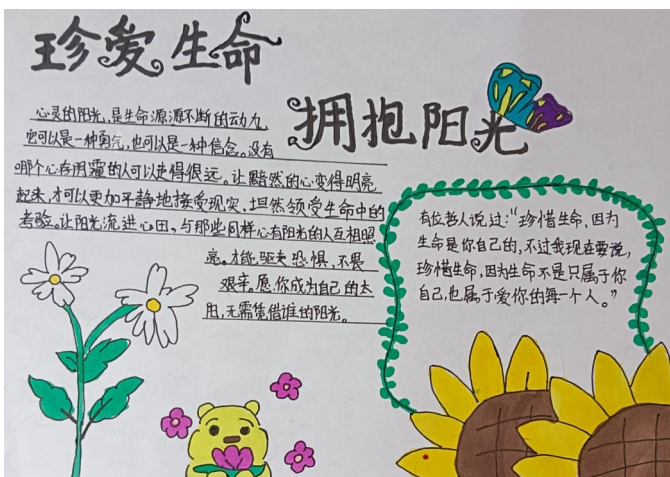 珍爱生命
拥抱阳光
心灵的阳光，是生命源源不断的动力，
它可以是一种勇气，也可以是一种信念。没有
哪个心存阴霾的人可以走得很远。让黯然的心变得明亮
起来，才可以更加平静地接受现实，坦然领受生命中的
考验。让阳光流进心田，与那些同样心有阳光的人互相照
亮。才能驱走恐惧，不畏
艰辛。愿你成为自己的太
阳，无需凭借谁的阳光。
有位老人说过：“珍惜生命，因为
生命是你自己的，不过我现在要说，
珍惜生命，因为生命不是只属于你
自己，也属于爱你的每一个人。”